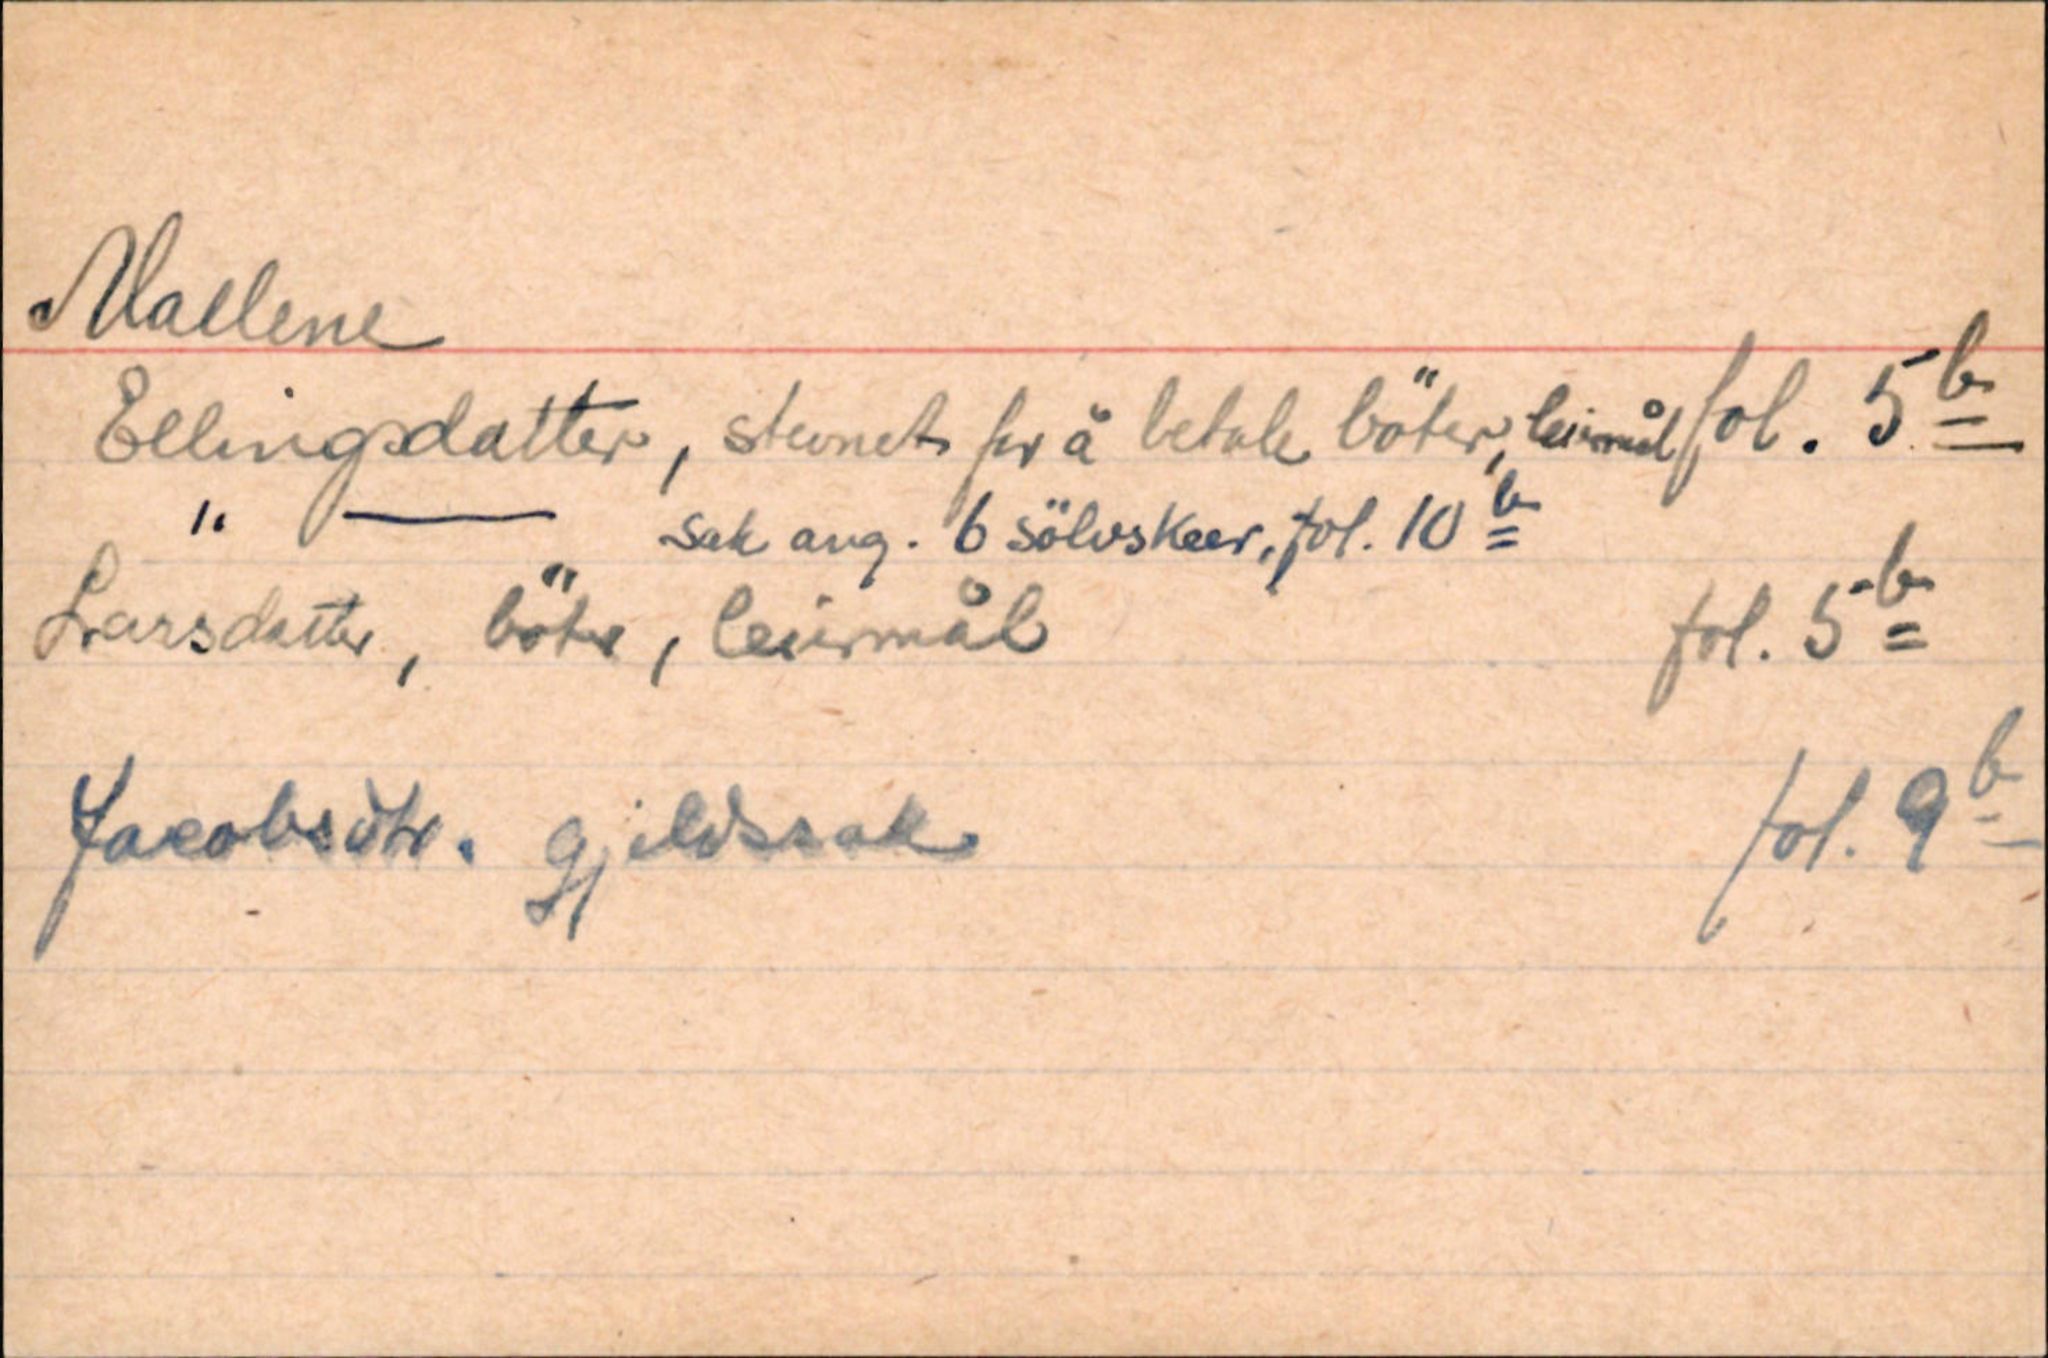 Mallene
Ellingsdatter, stevnet for å betale böter, leirmål fol. 5 b
" — sak ang. 6 sölvskeer, fol. 10 b
Larsdatter, böter, leirmål fol. 5 b
Jacobsdtr. gjeldssak fol. 9 b